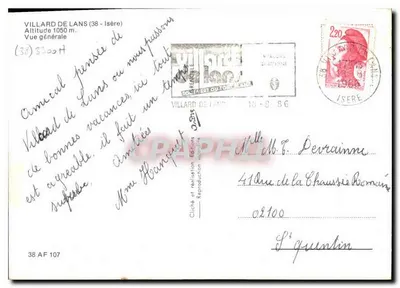 VILLARD DE LANS (38 - Isère)
Altitude 1050 m.
Vue générale
(38) 5300 H
Amical pensée de
Villard de Lans ou nous passons
de bonnes vacances, ici tout
est agréable, il fait un temps
superbe
Amitiés
Mme
38 AF 107
Cliché et réalisation
Reproduction
villard
de lans
VILLARD DE LANS
2,20
1986
ISERE
Mlle M. T Devrainne
41 Rue de la Chaussée Romaine
02100
St Quentin